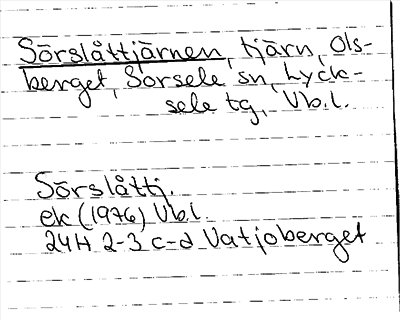 Sörslåttjärnen, tjärn, Ols-
berget, Sorsele sn, Lyck-
sele tg, Vb.l.
Sörslåttj.
ek (1976) Vb.l
24H 2-3 c-d Vatjoberget